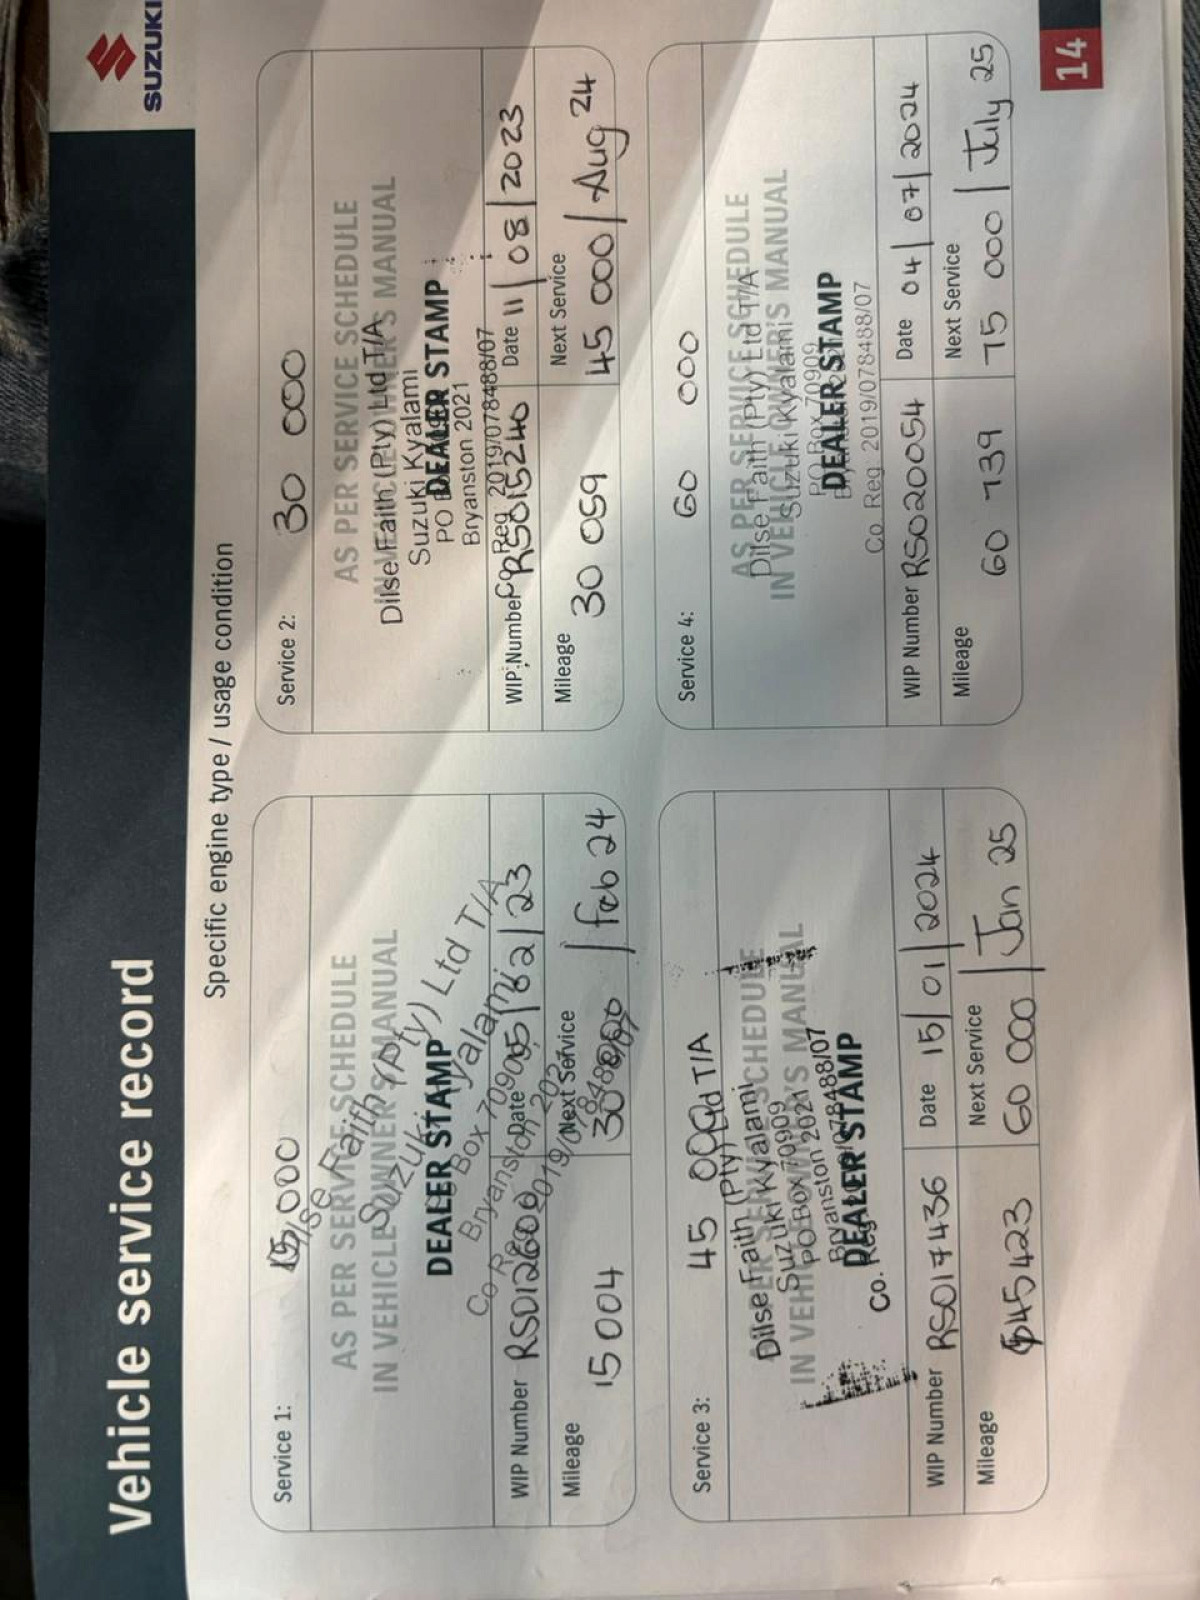 Vehicle service record
SUZUKI
Specific engine type / usage condition
Service 1: 15 000
AS PER SERVICE SCHEDULE
IN VEHICLE OWNER'S MANUAL
Dilse Faith (Pty) Ltd T/A
Suzuki Kyalami
DEALER STAMP
PO Box 70909
Bryanston 2021
Co Reg 2019/078488/07
WIP Number RS012600 Date 05/02/23
Mileage 15 004 Next Service 30 000 / Feb 24
Service 2: 30 000
AS PER SERVICE SCHEDULE
IN VEHICLE OWNER'S MANUAL
Dilse Faith (Pty) Ltd T/A
Suzuki Kyalami
DEALER STAMP
PO Box
Bryanston 2021
Co Reg 2019/078488/07
WIP Number RS015240 Date 11/08/2023
Mileage 30 059 Next Service 45 000 / Aug 24
Service 3: 45 000
Dilse Faith (Pty) Ltd T/A
AS PER SERVICE SCHEDULE
Suzuki Kyalami
IN VEHICLE OWNER'S MANUAL
PO Box 70909
Bryanston 2021
DEALER STAMP
Co. Reg. 2019/078488/07
WIP Number RS017436 Date 15/01/2024
Mileage 45 423 Next Service 60 000 / Jan 25
Service 4: 60 000
AS PER SERVICE SCHEDULE
Dilse Faith (Pty) Ltd T/A
IN VEHICLE OWNER'S MANUAL
Suzuki Kyalami
PO Box 70909
DEALER STAMP
Co. Reg. 2019/078488/07
WIP Number RS020054 Date 04/07/2024
Mileage 60 739 Next Service 75 000 / July 25
14